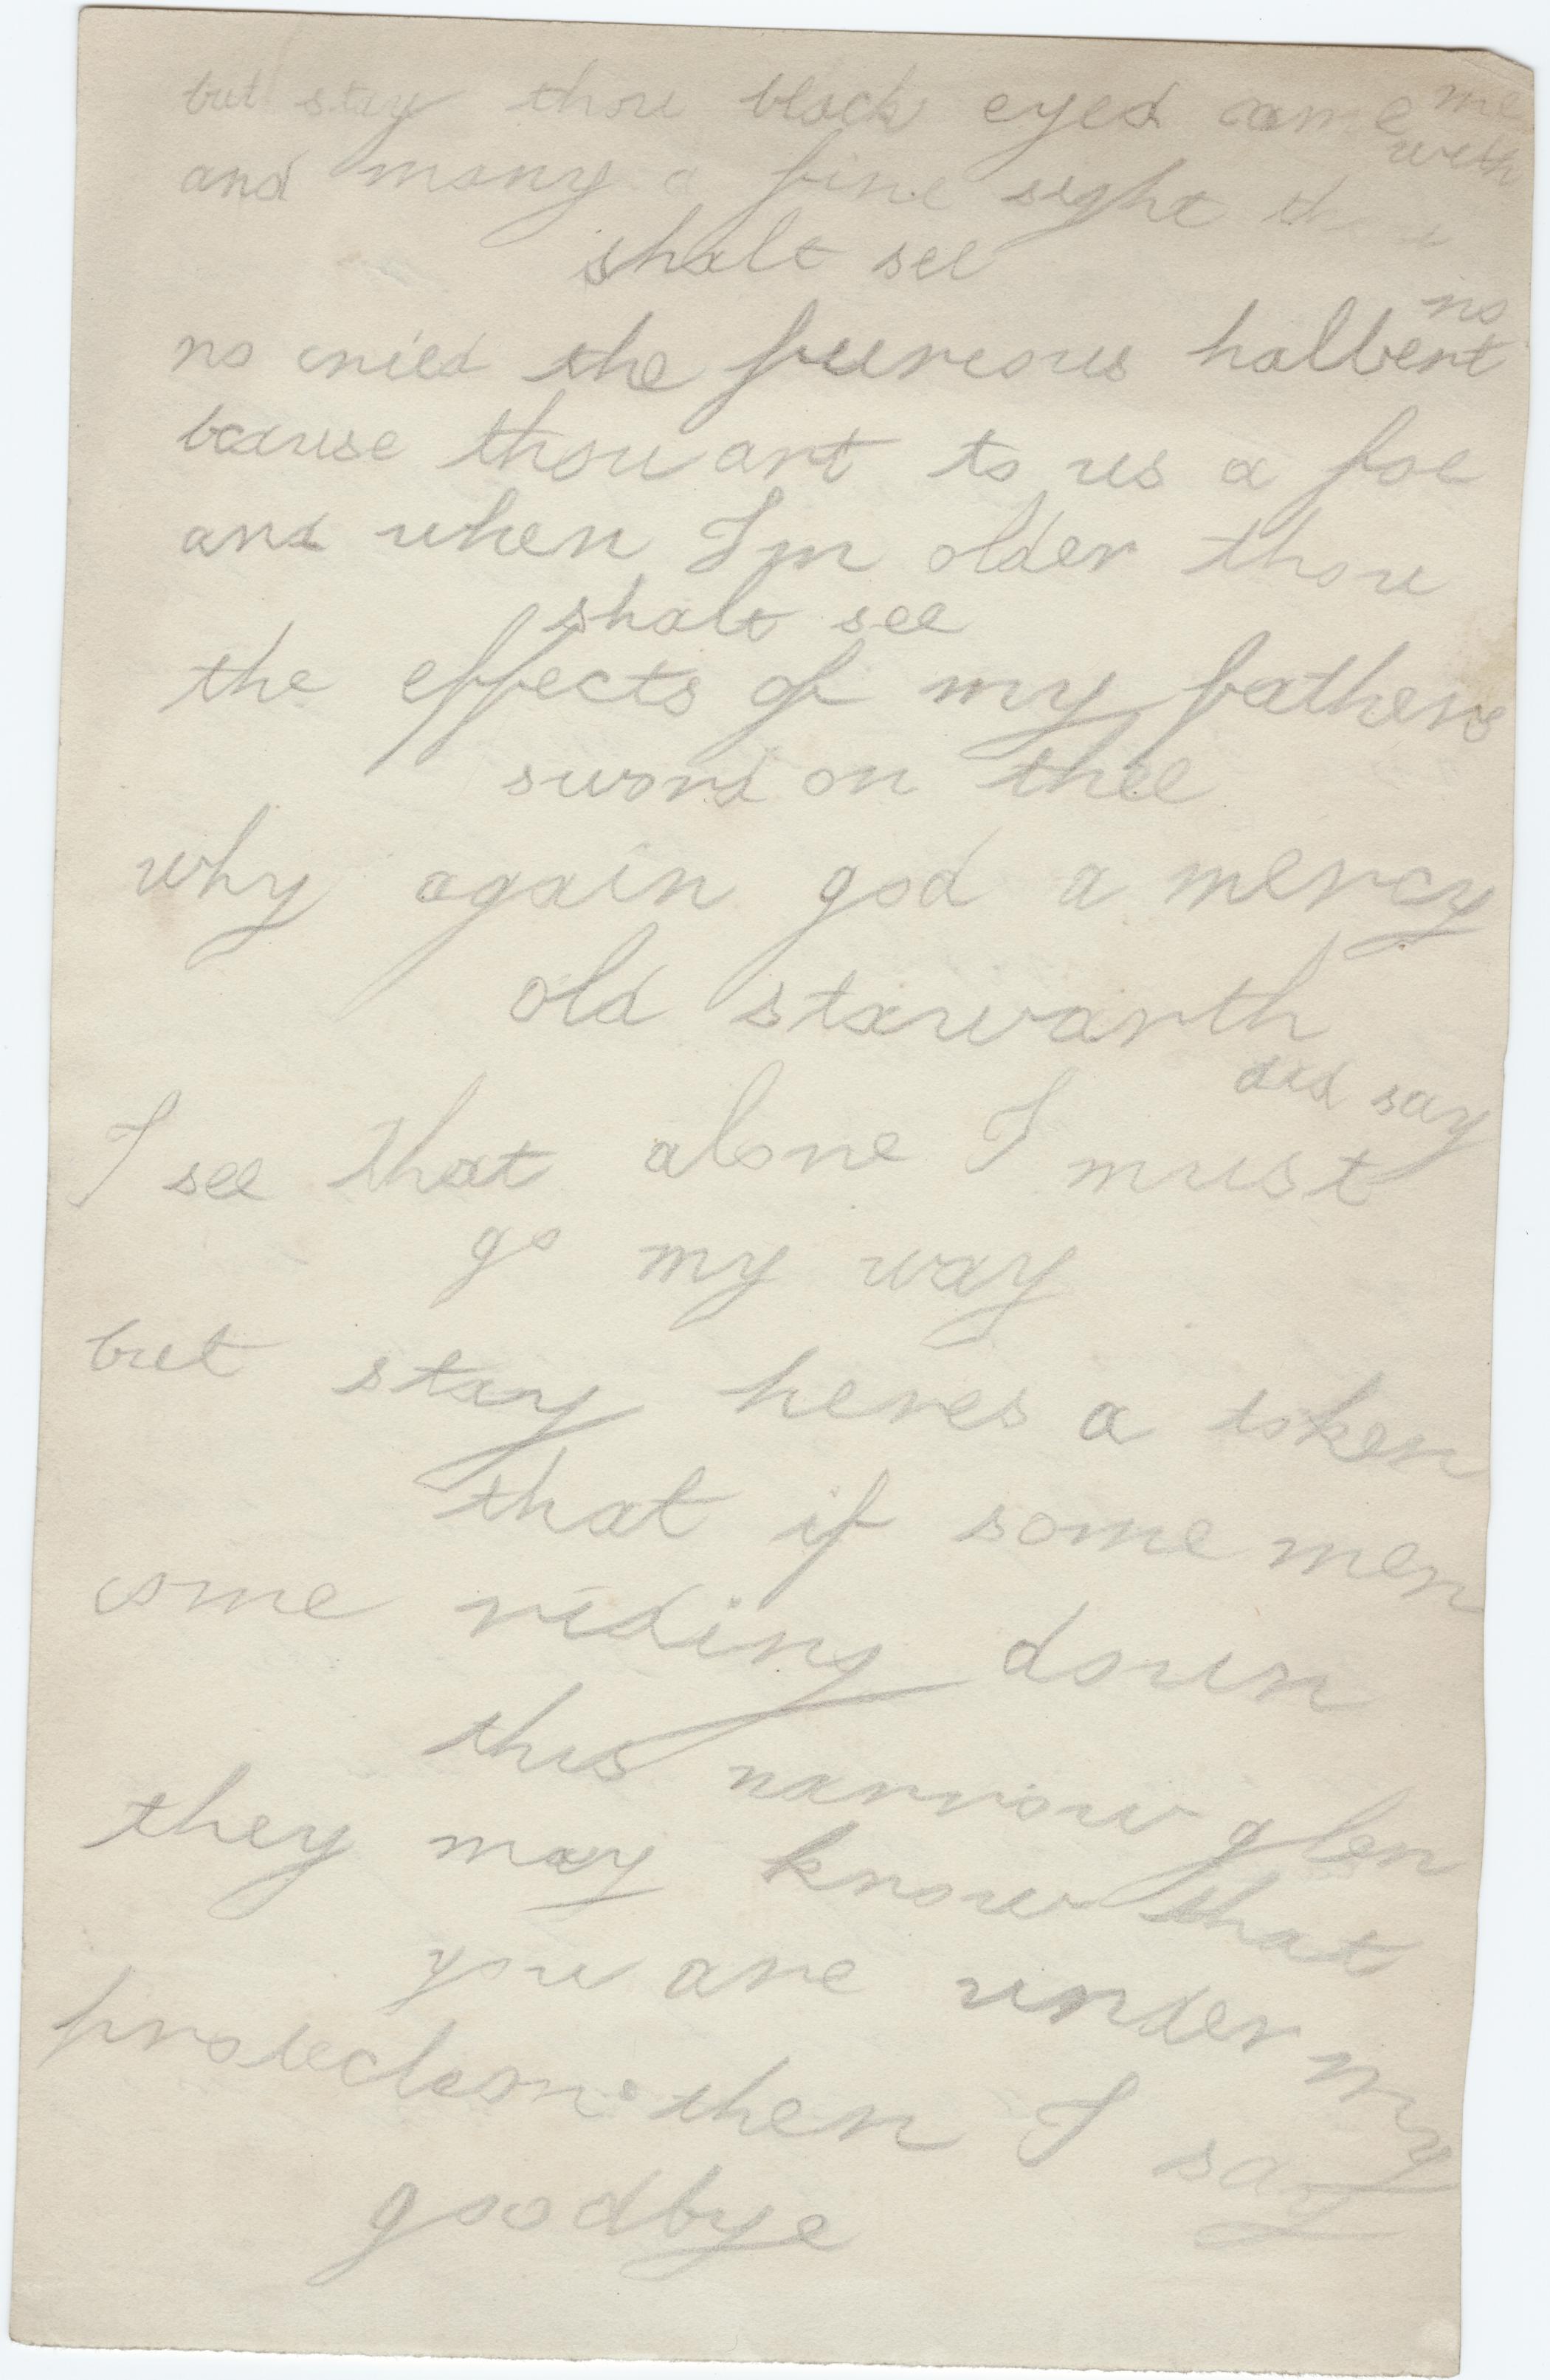 but stay thou black eyed come me
with
and many a fine sight thou
shalt see
no
no cried the furious halbert
bcause thou art to us a foe
and when Im older thou
shalt see
the effects of my fathers
sword on thee
why again god a mercy
old stawarth
did say
I see that alone I must
go my way
but stay heres a token
that if some men
come riding down
this narrow glen
they may know that
you are under my
protection then I say
goodbye